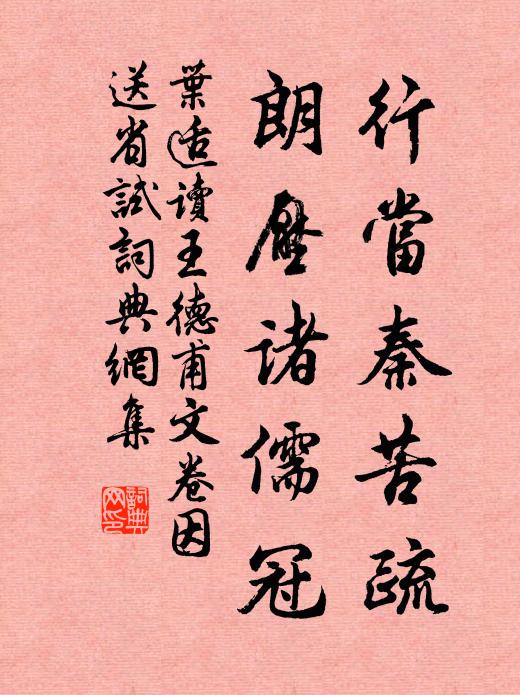 行當奏苦疏
朗壓諸儒冠
葉适讀王德甫文卷因
送省試詞典網集
詞典
网印